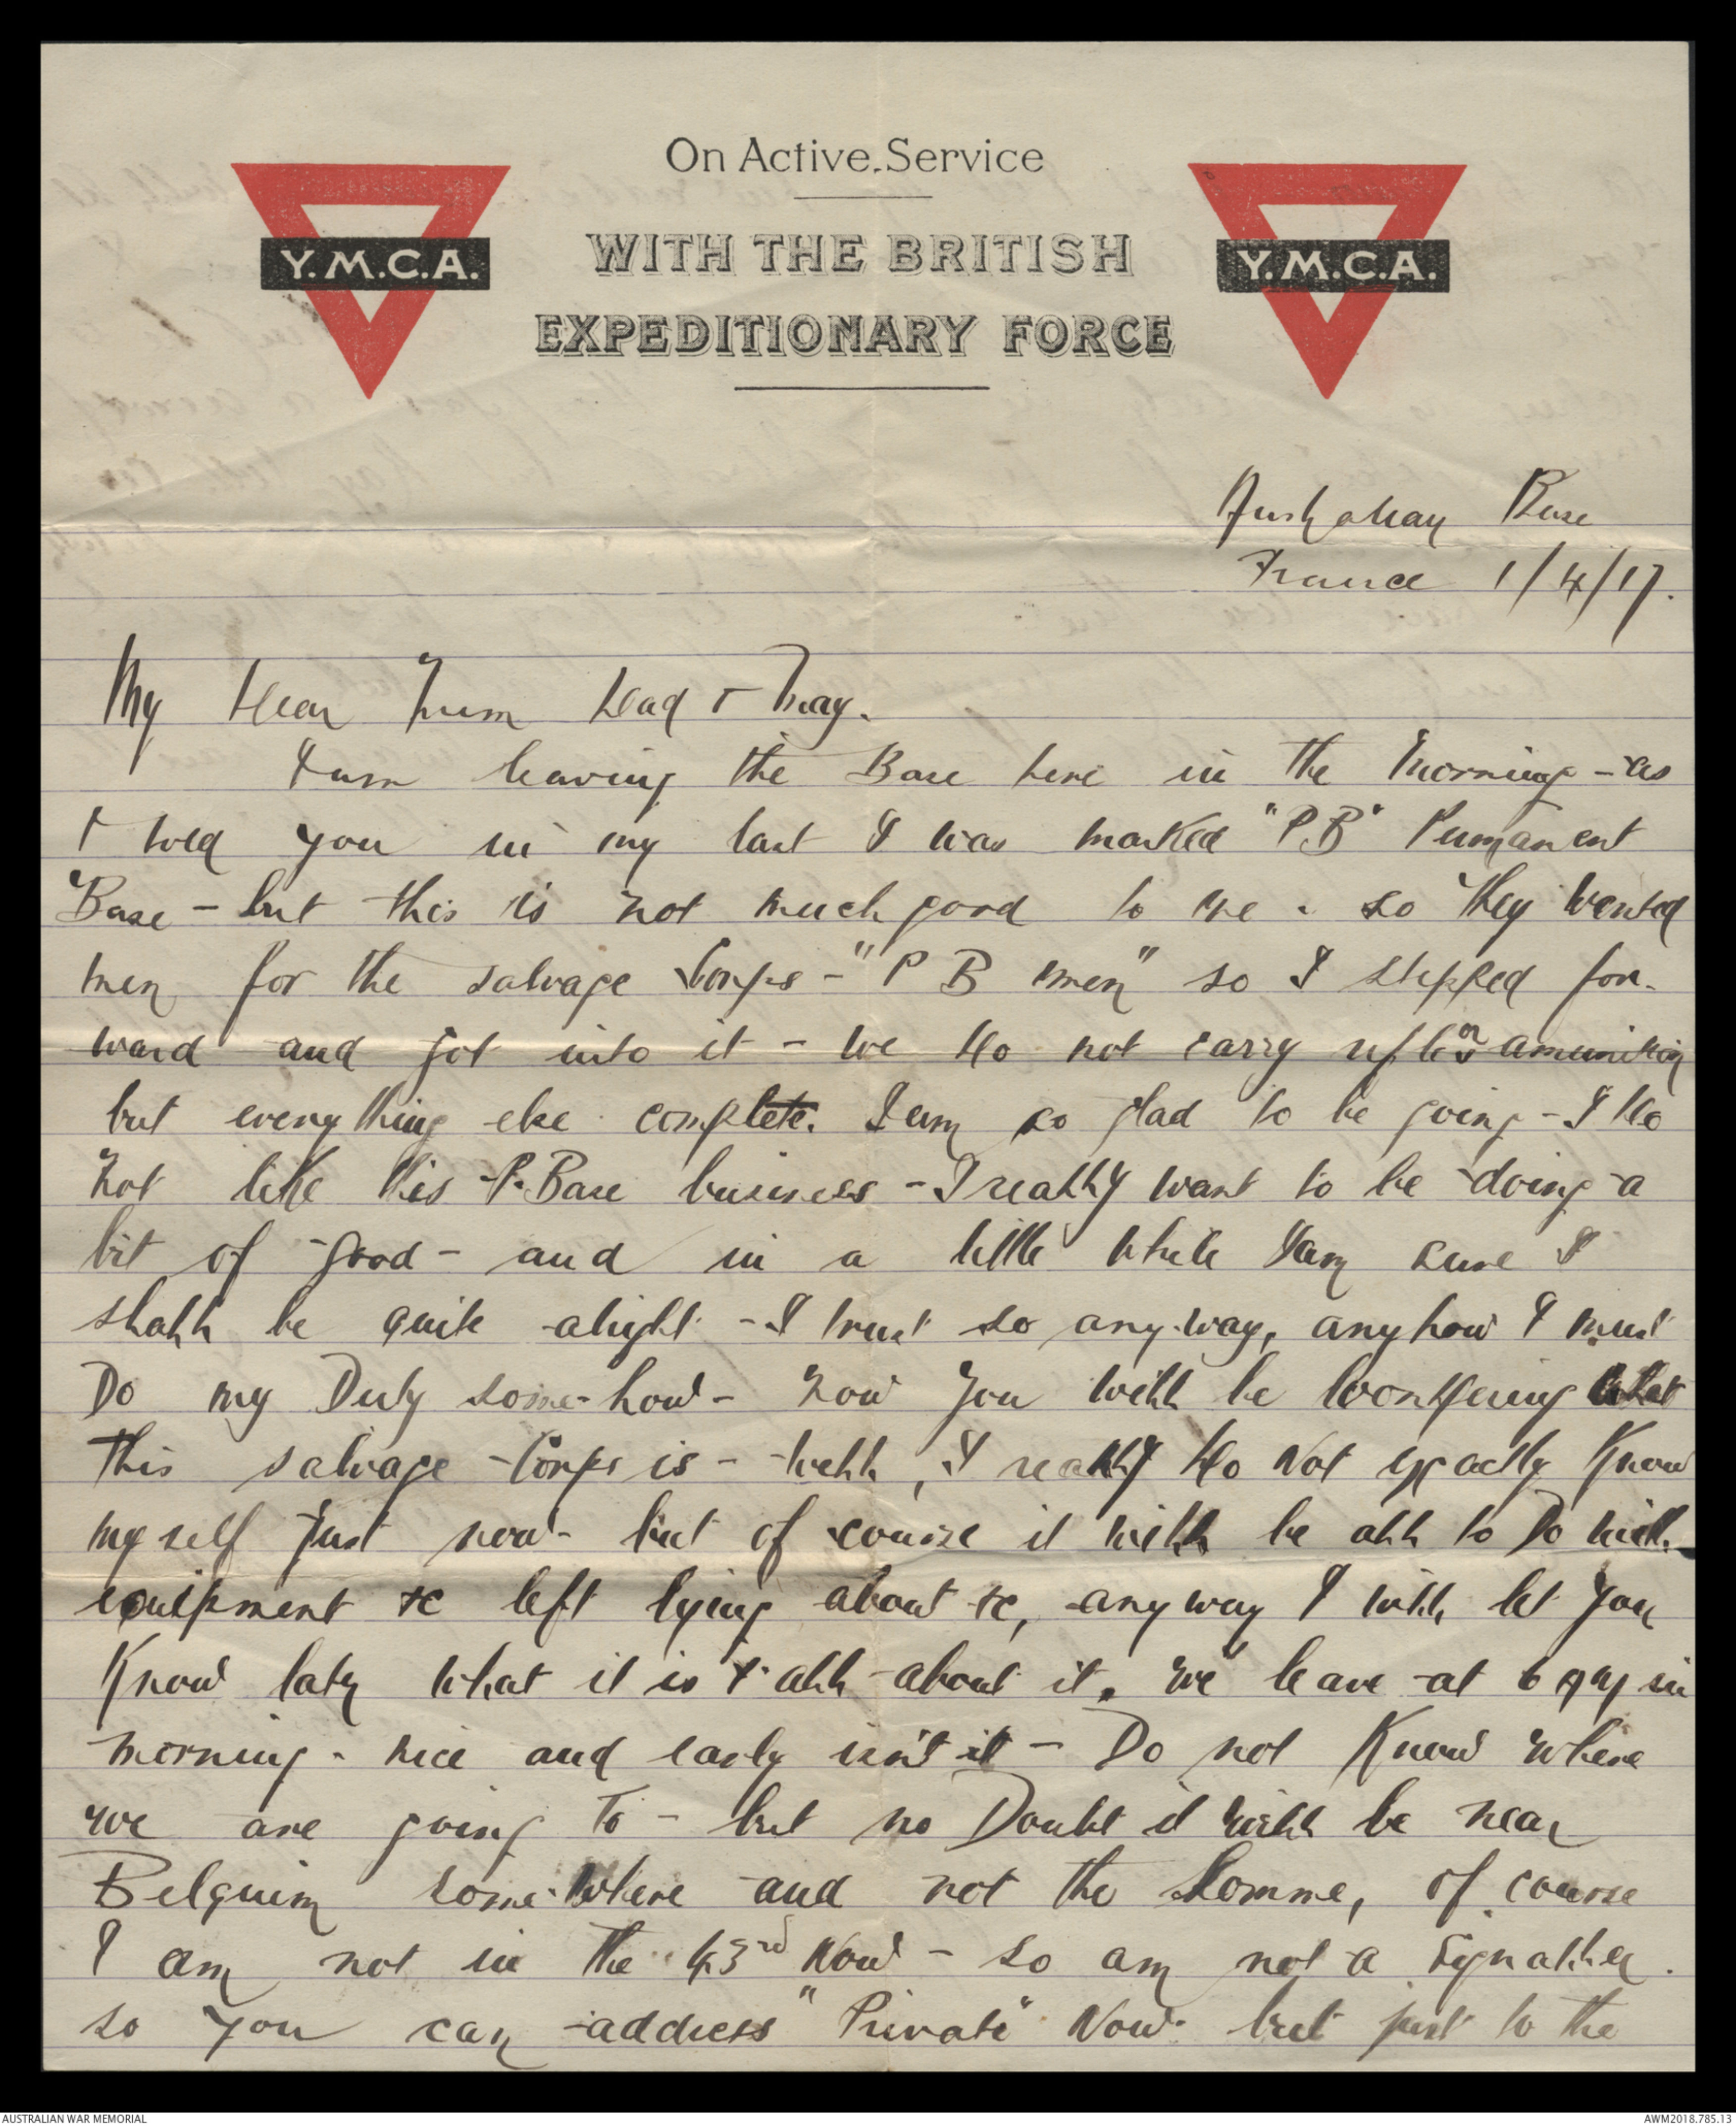 On Active Service
Y.M.C.A. WITH THE BRITISH Y.M.C.A.
EXPEDITIONARY FORCE
Australian Base
France 1/4/17.
My Dear Mum Dad & May.
I am leaving the Base here in the morning - as
I told you in my last I was marked "P.B" Permanent
Base - but this is not much good to me - so they wanted
men for the salvage Corps - "P B men" so I stepped for-
ward and got into it - we do not carry rifles or amunition
but everything else complete. I am so glad to be going - I do
not like this P. Base business - I really want to be doing a
bit of good - and in a little while I am sure I
shall be quite alright - I trust so anyway, anyhow I must
Do my Duty some-how - now you will be wondering what
this salvage Corps is - well, I really do not exactly know
myself just now - but of course it will be all to Do with
equipment &c left lying about &c, anyway I will let you
know later what it is & all about it. We leave at 6 am in
morning - nice and early isn't it - Do not know where
we are going to - but no Doubt it will be near
Belguim some-where and not the Somme, of course
I am not in the 43rd Now - so am not a signaller.
so you can address "Private" Now but just to the
AUSTRALIAN WAR MEMORIAL
AWM2018.785.13